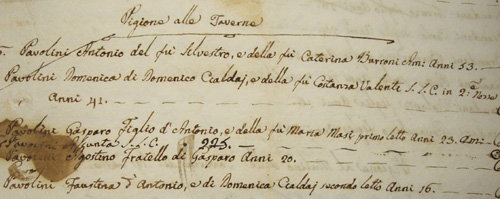 Pigione alle Taverne
Pavolini Antonio del fù Silvestro, e della fù Caterina Barroni Am: Anni 53.
Pavolini Domenica di Domenico Cialdaj, e della fù Costanza Valenti S.S.C. in 2.e
Anni 41.
Pavolini Gasparo Figlio d'Antonio, e della fù Maria Masi primo letto Anni 23. Am:
Pavolini Assunta S.S.C. 22
Pavolini Agostino fratello di Gasparo Anni 20.
Pavolini Faustina d'Antonio, e di Domenica Cialdaj secondo letto Anni 16.